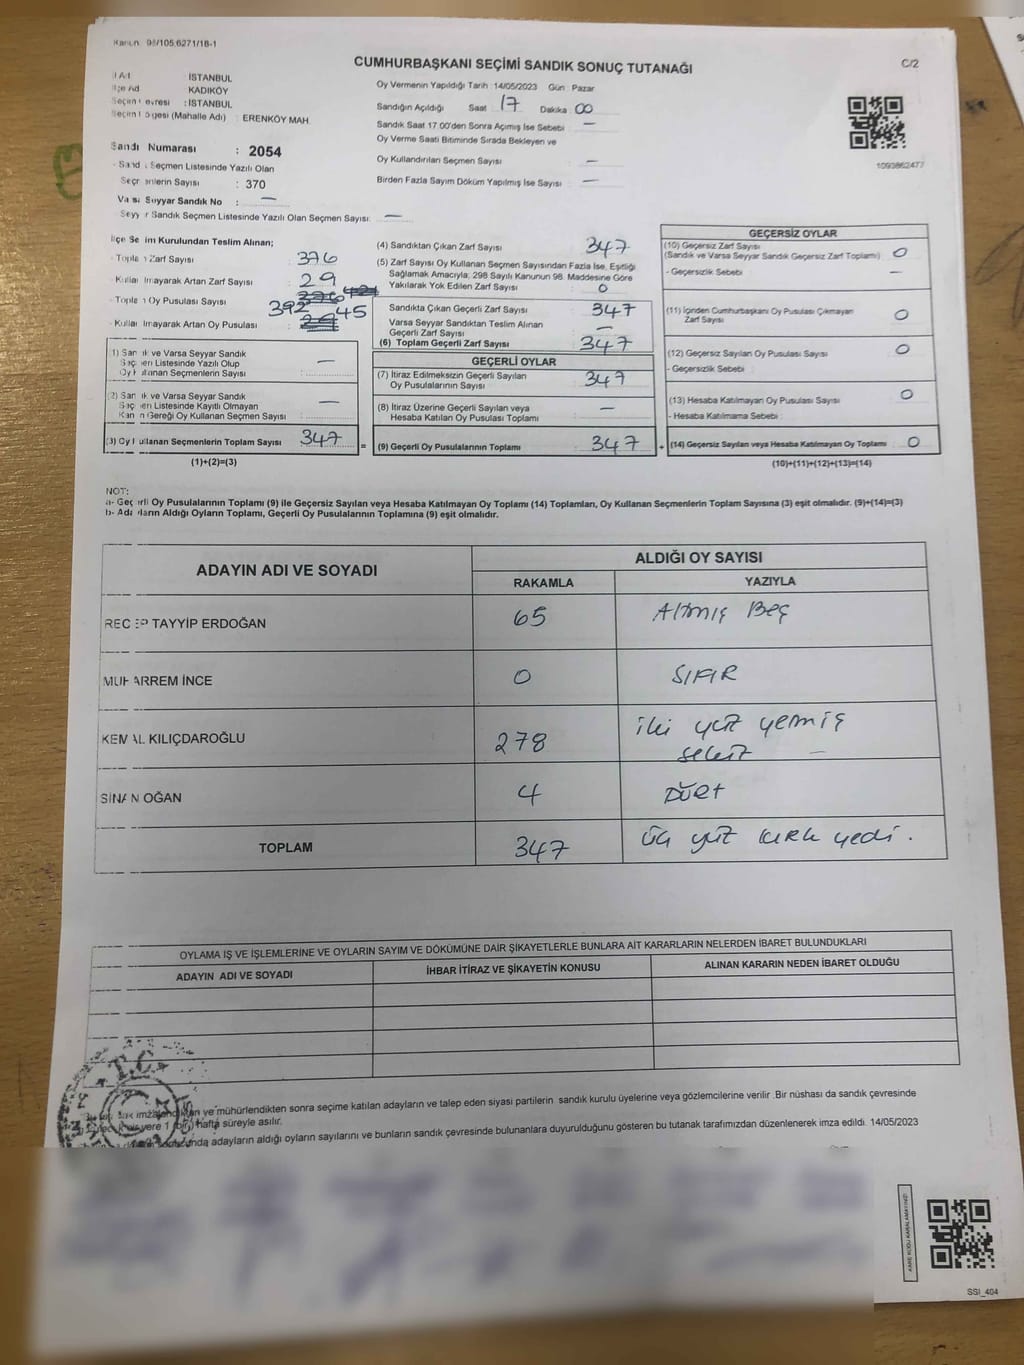 Kanun 98/105,6271/18-1
CUMHURBAŞKANI SEÇİMİ SANDIK SONUÇ TUTANAĞI
C/2
İSTANBUL
KADIKÖY
: İSTANBUL
(Mahalle Adı) : ERENKÖY MAH.
Sandı Numarası : 2054
Seçmen Listesinde Yazılı Olan
Sayısı : 370
Seyyar Sandık No : —
Sandık Seçmen Listesinde Yazılı Olan Seçmen Sayısı: —
Oy Vermenin Yapıldığı Tarih : 14/05/2023 Gün : Pazar
Sandığın Açıldığı Saat 17 Dakika 00
Sandık Saat 17.00'den Sonra Açımış İse Sebebi : —
Oy Verme Saati Bitiminde Sırada Bekleyen ve
Oy Kullandırılan Seçmen Sayısı : —
Birden Fazla Sayım Döküm Yapılmış İse Sayısı : —
1093862477
Kurulundan Teslim Alınan;
Zarf Sayısı : 376
Artan Zarf Sayısı : 29
Oy Pusulası Sayısı : 392
Artan Oy Pusulası : 45
1) San ık ve Varsa Seyyar Sandık
Listesinde Yazılı Olup
Seçmenlerin Sayısı : —
(2) San ık ve Varsa Seyyar Sandık
Listesinde Kayıtlı Olmayan
Gereği Oy Kullanan Seçmen Sayısı : —
(3) Oy Kullanan Seçmenlerin Toplam Sayısı 347 =
(1)+(2)=(3)
(4) Sandıktan Çıkan Zarf Sayısı : 347
(5) Zarf Sayısı Oy Kullanan Seçmen Sayısından Fazla İse, Eşitliği
Sağlamak Amacıyla; 298 Sayılı Kanunun 98. Maddesine Göre
Yakılarak Yok Edilen Zarf Sayısı : 0
Sandıkta Çıkan Geçerli Zarf Sayısı : 347
Varsa Seyyar Sandıktan Teslim Alınan
Geçerli Zarf Sayısı : —
(6) Toplam Geçerli Zarf Sayısı : 347
GEÇERLİ OYLAR
(7) İtiraz Edilmeksizin Geçerli Sayılan
Oy Pusulalarının Sayısı : 347
(8) İtiraz Üzerine Geçerli Sayılan veya
Hesaba Katılan Oy Pusulası Toplamı : —
(9) Geçerli Oy Pusulalarının Toplamı : 347 +
GEÇERSİZ OYLAR
(10) Geçersiz Zarf Sayısı
(Sandık ve Varsa Seyyar Sandık Geçersiz Zarf Toplamı) : 0
- Geçersizlik Sebebi : —
(11) İçinden Cumhurbaşkanı Oy Pusulası Çıkmayan
Zarf Sayısı : 0
(12) Geçersiz Sayılan Oy Pusulası Sayısı : 0
- Geçersizlik Sebebi :
(13) Hesaba Katılmayan Oy Pusulası Sayısı : 0
- Hesaba Katılmama Sebebi :
(14) Geçersiz Sayılan veya Hesaba Katılmayan Oy Toplamı : 0
(10)+(11)+(12)+(13)=(14)
NOT:
a- Geçerli Oy Pusulalarının Toplamı (9) ile Geçersiz Sayılan veya Hesaba Katılmayan Oy Toplamı (14) Toplamları, Oy Kullanan Seçmenlerin Toplam Sayısına (3) eşit olmalıdır. (9)+(14)=(3)
b- Adayların Aldığı Oyların Toplamı, Geçerli Oy Pusulalarının Toplamına (9) eşit olmalıdır.
ADAYIN ADI VE SOYADI
ALDIĞI OY SAYISI
RAKAMLA YAZIYLA
RECEP TAYYİP ERDOĞAN 65 Altmış Beş
MUHARREM İNCE 0 SIFIR
KEMAL KILIÇDAROĞLU 278 iki yüz yetmiş
sekiz —
SİNAN OĞAN 4 DÖRT
TOPLAM 347 üç yüz kırk yedi.
OYLAMA İŞ VE İŞLEMLERİNE VE OYLARIN SAYIM VE DÖKÜMÜNE DAİR ŞİKAYETLERLE BUNLARA AİT KARARLARIN NELERDEN İBARET BULUNDUKLARI
ADAYIN ADI VE SOYADI İHBAR İTİRAZ VE ŞİKAYETİN KONUSU ALINAN KARARIN NEDEN İBARET OLDUĞU
T.C.
ve mühürlendikten sonra seçime katılan adayların ve talep eden siyasi partilerin sandık kurulu üyelerine veya gözlemcilerine verilir. Bir nüshası da sandık çevresinde
yere 1 (bir) hafta süreyle asılır.
adayların aldığı oyların sayılarını ve bunların sandık çevresinde bulunanlara duyurulduğunu gösteren bu tutanak tarafımızdan düzenlenerek imza edildi. 14/05/2023
KARE KODU KARALAMAYINIZ!
SSI_404